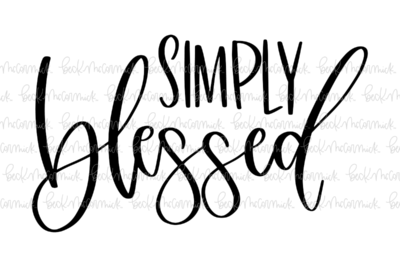 SIMPLY
blessed